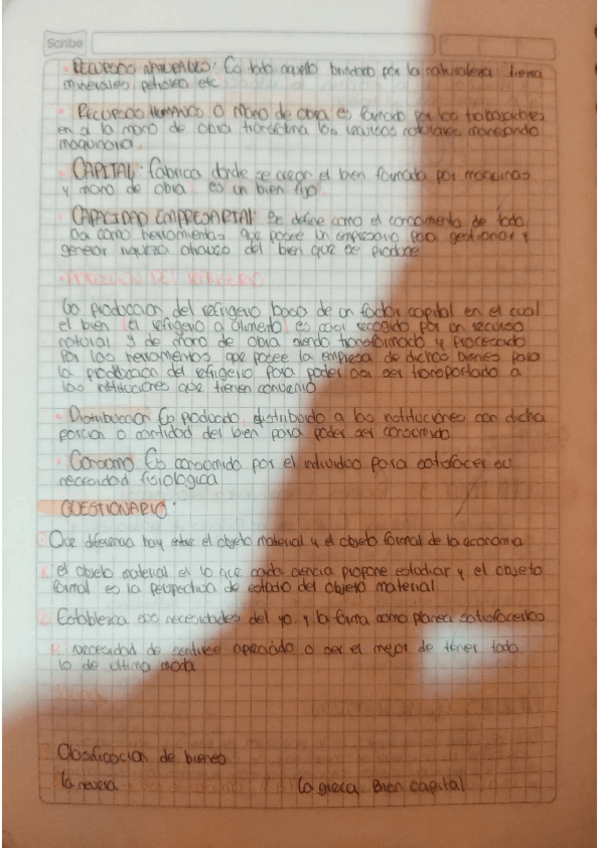 Scribe
• RECURSOS NATURALES: Es todo aquello brindado por la naturaleza tierra
minerales, petroleo etc
• RECURSO HUMANO O Mano de obra es formado por los trabajadores
en a la mano de obra transforma los recursos naturales manejando
maquinaria.
• CAPITAL: fabrica donde se crean el bien formada por maquinas
y mano de obra es un bien fijo.
• CAPACIDAD EMPRESARIAL: Se define como el conocimiento de todo
asi como herramientas que posee un empresario para gestionar y
generar riqueza atraves del bien que se produce
DEL REFRIGERIO
La produccion del refrigerio baco de un factor capital en el cual
el bien (el refrigerio o alimento) es cual recogido por un recurso
natural y de mano de obra siendo transformado y procesado
Por las herramientas que posee la empresa de dichos bienes para
la produccion del refrigerio para poder asi ser transportado a
las instituciones que tienen convenio.
• Distribucion Es producido, distribuido a las instituciones con dicha
porcion o cantidad del bien para poder ser consumido
• Consumo Es consumido por el individuo para satisfacer su
necesidad fisiologica
CUESTIONARIO:
Que diferencia hay entre el objeto material y el objeto formal de la economia
el objeto material es lo que cada ciencia propone estudiar y el objeto
formal es la perspectiva de estudio del objeto material
2. Establezca sus necesidades del yo y la forma como planea satisfacerlas
R/ necesidad de sentirse apreciado o ser el mejor de tener todo
lo de ultima moda
Clasificacion de bienes
la nevera la greca Bien capital